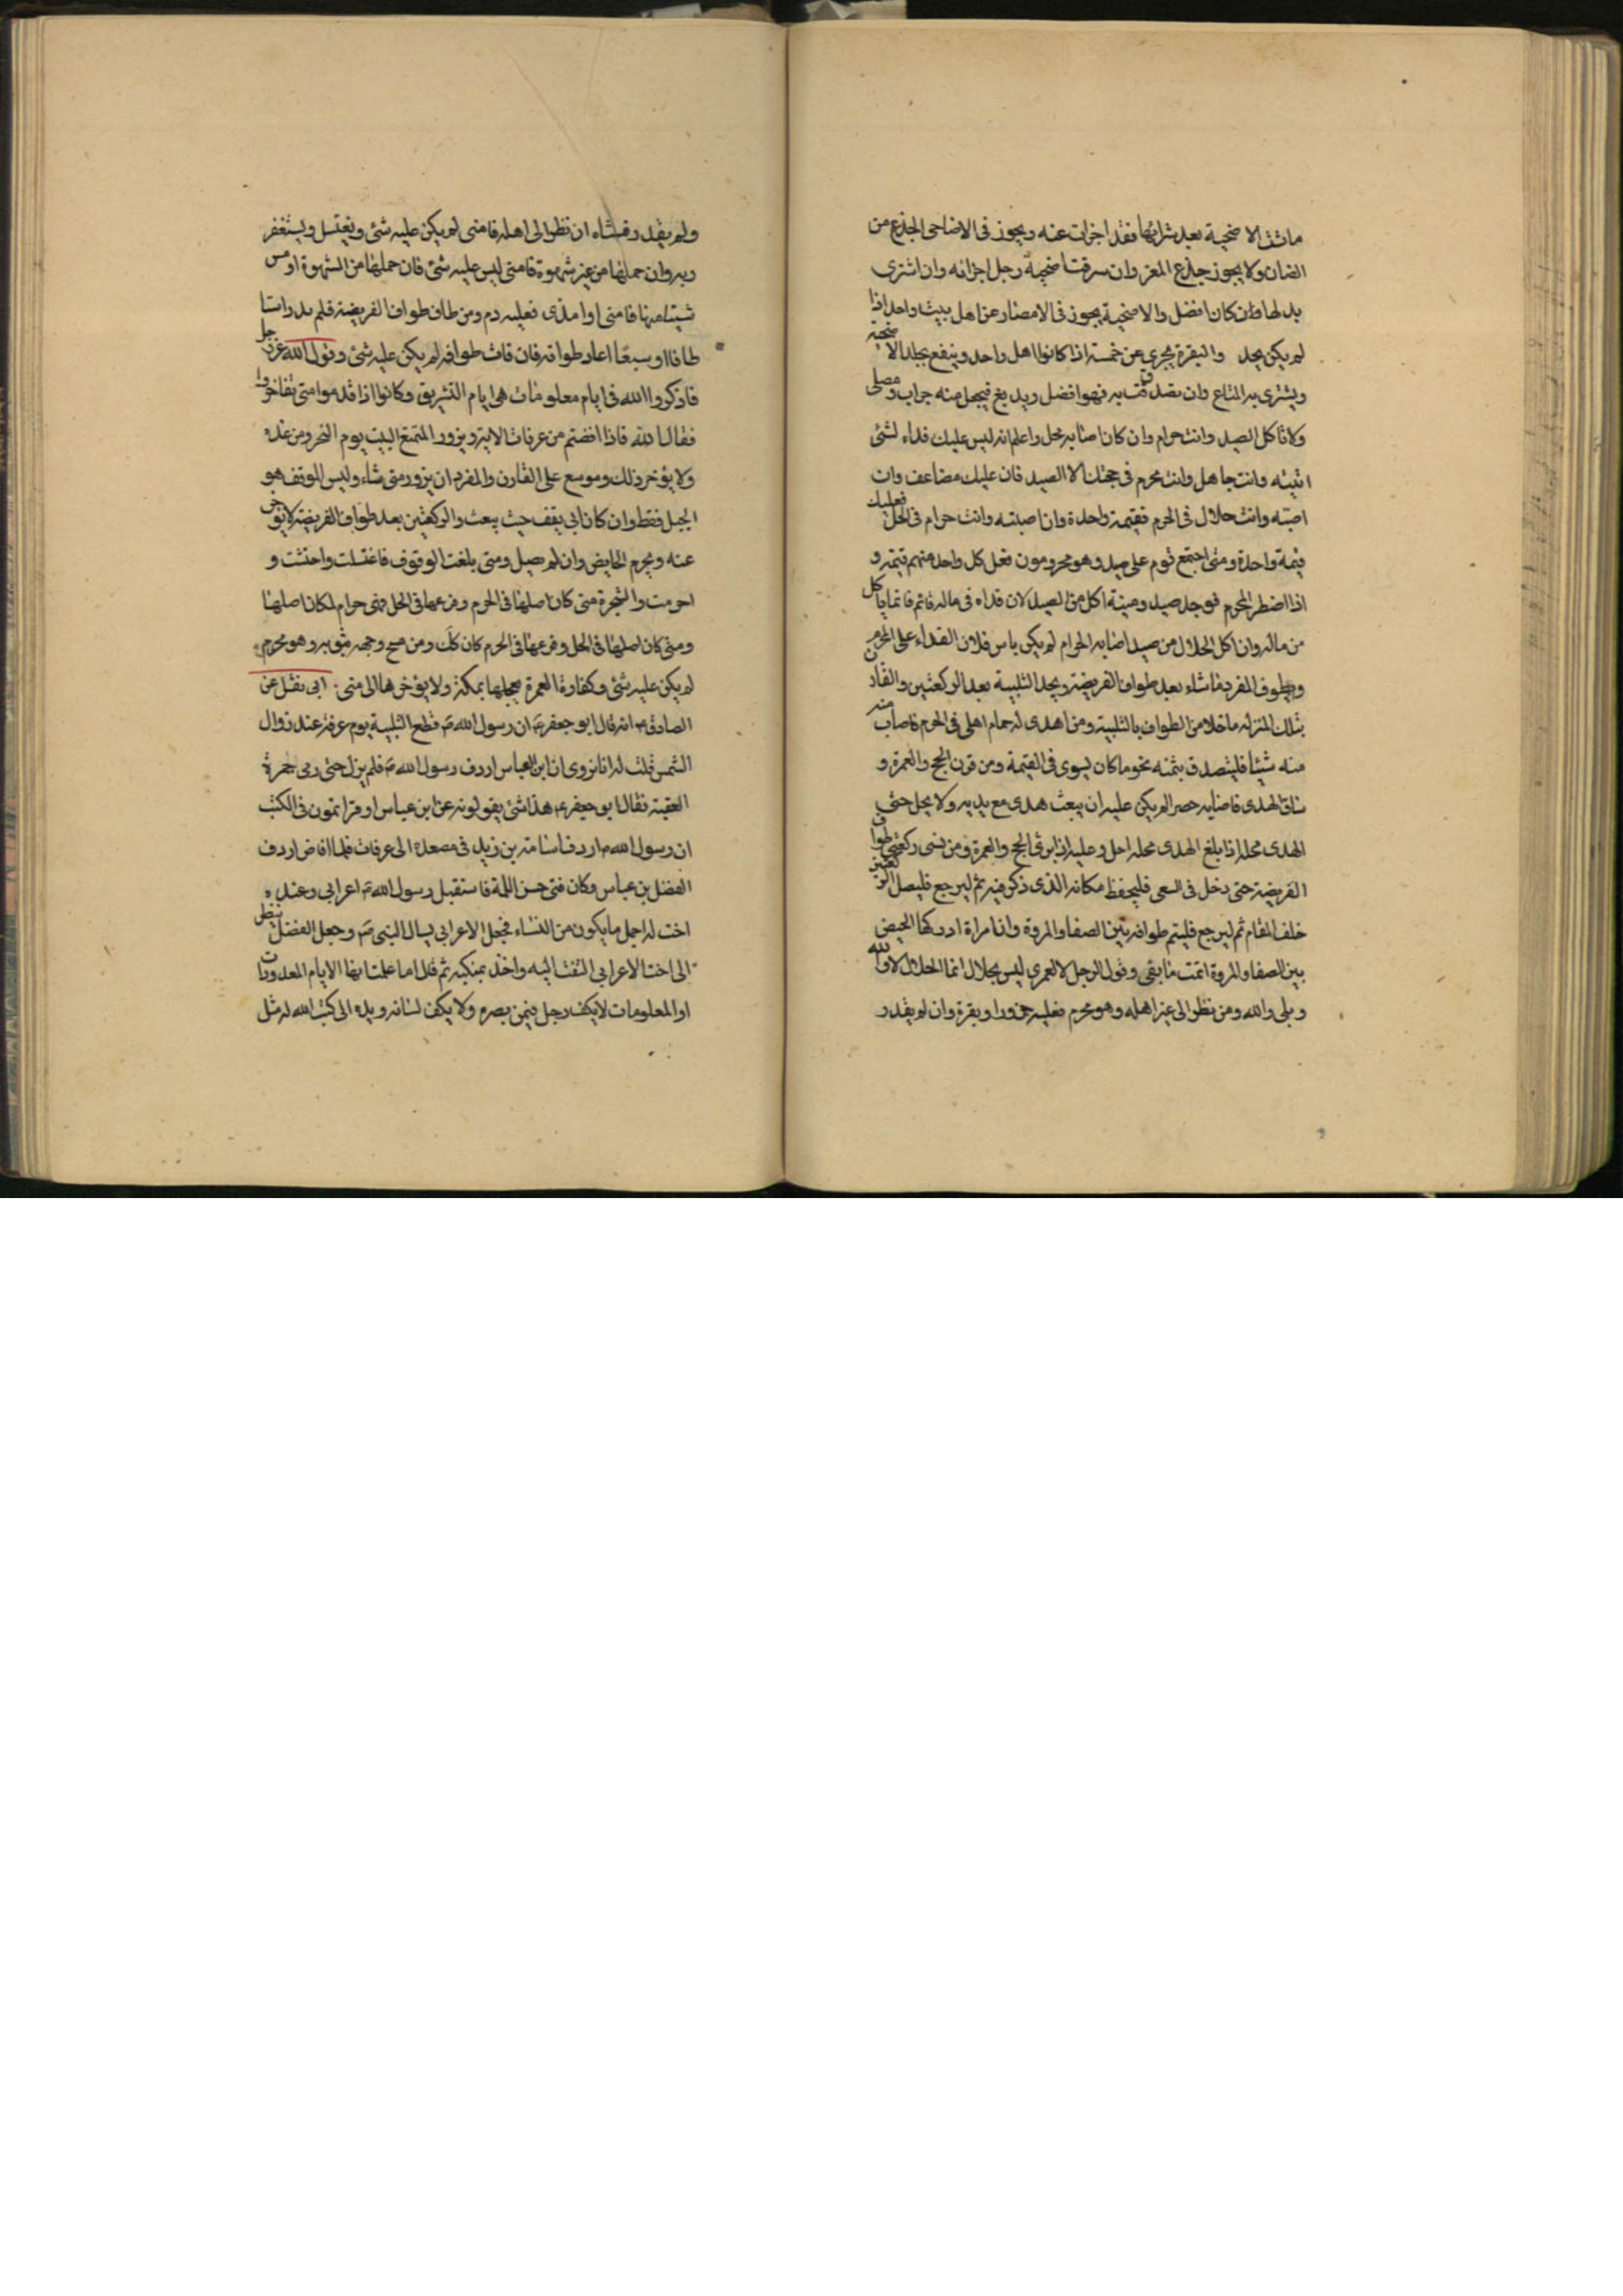 ماتت الاضحية بعد شرائها فقد اجزات عنه ويجوز فى الاضاحى الجذع من
الضان ولا يجوز جذع المعز وان سرقت اضحية رجل اجزائه وان اشترى
بدلها وان كان افضل والاضحية يجوز فى الامصار عن اهل بيت واحد اذا
لم يكن يجد والبقرة يجزى عن خمسة اذا كانوا اهل واحد وينفع بجلد الاضحية
ويشترى به المتاع وان تصدقت به فهو افضل ويدبغ فيجعل منه جراب ومصلى
ولا تاكل الصيد وانت حرام وان كان اصابه محل واعلم انه ليس عليك فداء لشئ
اتيته وانت جاهل وانت محرم فى حجتك الا الصيد فان عليك مضاعف وان
اصبته وانت حلال فى الحرم فقيمة واحدة وان اصبته وانت حرام فى الحل فعليك
قيمة واحدة ومتى اجتمع قوم على صيد وهو محرومون فعلى كل واحد منهم قيمة و
اذا اضطر المحرم فوجد صيد وميتة اكل من الصيد لان فداه فى ماله قائم فانما ياكل
من ماله وان اكل الحلال من صيد اصابه الحرام لم يكن باس فلان الفداء على المحرم
ويطوف المفرد ماشاء بعد طواف الفريضة ويجد التلبية بعد الركعتين والقارن
بتلك المنزلة ماخلا من الطواف بالتلبية ومن اهدى له حمام اهلى فى الحرم فاصاب منه
منه شيئا فليتصدق بثمنه نحو ما كان يسوى فى القيمة ومن قرن الحج والعمرة و
ساق الهدى فاصابه حصر لم يكن عليه ان يبعث هدى مع يديه ولا يحل حتى
الهدى محله اذا بلغ الهدى محله احل وعليه اذا برئ الحج والعمرة ومن نسى ركعتى طواف
الفريضة حتى دخل فى السعى فليحفظ مكانه الذى ذكر فيه ثم ليرجع فليصل الركعتين
خلف المقام ثم ليرجع فليتم طوافه بين الصفا والمروة وان امراة ادركها الحيض
بين الصفا والمروة اتمت ما بقى وقول الرجل لا لعمرى ليس بجلال انما الحلال لا والله
وبلى والله ومن نظر الى غير اهله وهو محرم فعليه جزورا وبقرة وان لم يقدر
ولم يقدر فشاه ان نظر الى اهله فامنى لم يكن عليه شئ ويغتسل ويستغفر
ربه وان حملها من غير شهوة فامنى ليس عليه شئ فان حملها من الشهوة او مس
شيئا منها فامنى او امذى فعليه دم ومن طاف طواف الفريضة فلم يدر استا
طاف او سبعا اعاد طوافه فان فات طوافه لم يكن عليه شئ وقول الله عز وجل
فاذكروا الله فى ايام معلومات هى ايام التشريق وكانوا اذا قدموا منى تفاخروا
فقال الله فاذا افضتم من عرفات الاية ويزور المتمتع البيت يوم النحر ومن غده
ولا يؤخر ذلك وموسع على القارن والمفرد ان يزور متى شاء وليس الموقف هو
الجبل فقط وان كان ابى يقف حيث يبعث والركعتين بعد طواف الفريضة لا يؤخر
عنه ويحرم الحايض وان لم تصل ومتى بلغت الوقوف فاغتسلت واحتشت و
احرمت والشجرة متى كان اصلها فى الحرم وفرعها فى الحل فهى حرام لمكان اصلها
ومتى كان اصلها فى الحل وفرعها فى الحرم كان كك ومن مسح وجهه بثوبه وهو محرم
لم يكن عليه شئ وكفارة العمرة يعجلها بمكة ولا يؤخرها الى منى ابى نقل عن
الصادق انه قال ابو جعفر ان رسول الله قطع التلبية يوم عرفة عند زوال
الشمس قلت له انا نروى ان ابن العباس اردف رسول الله فلم يزل حتى رمى جمرة
العقبة فقال ابو جعفر هذا شئ يقولونه عن ابن عباس او قراتمون فى الكتب
ان رسول الله اردف اسامة بن زيد فى مصعده الى عرفات فلما افاض اردف
الفضل بن عباس وكان فتى حسن اللمة فاستقبل رسول الله اعرابى وعنده
اخت له اجمل ما يكون من النساء فجعل الاعرابى يسال النبى وجعل الفضل ينظر
الى اخت الاعرابى التفت اليه واخذ بمنكبه ثم قال اما علمت انها الايام المعدودات
او المعلومات لا يكف رجل فيهن بصره ولا يكف لسانه ويده الى كتب الله له مثل